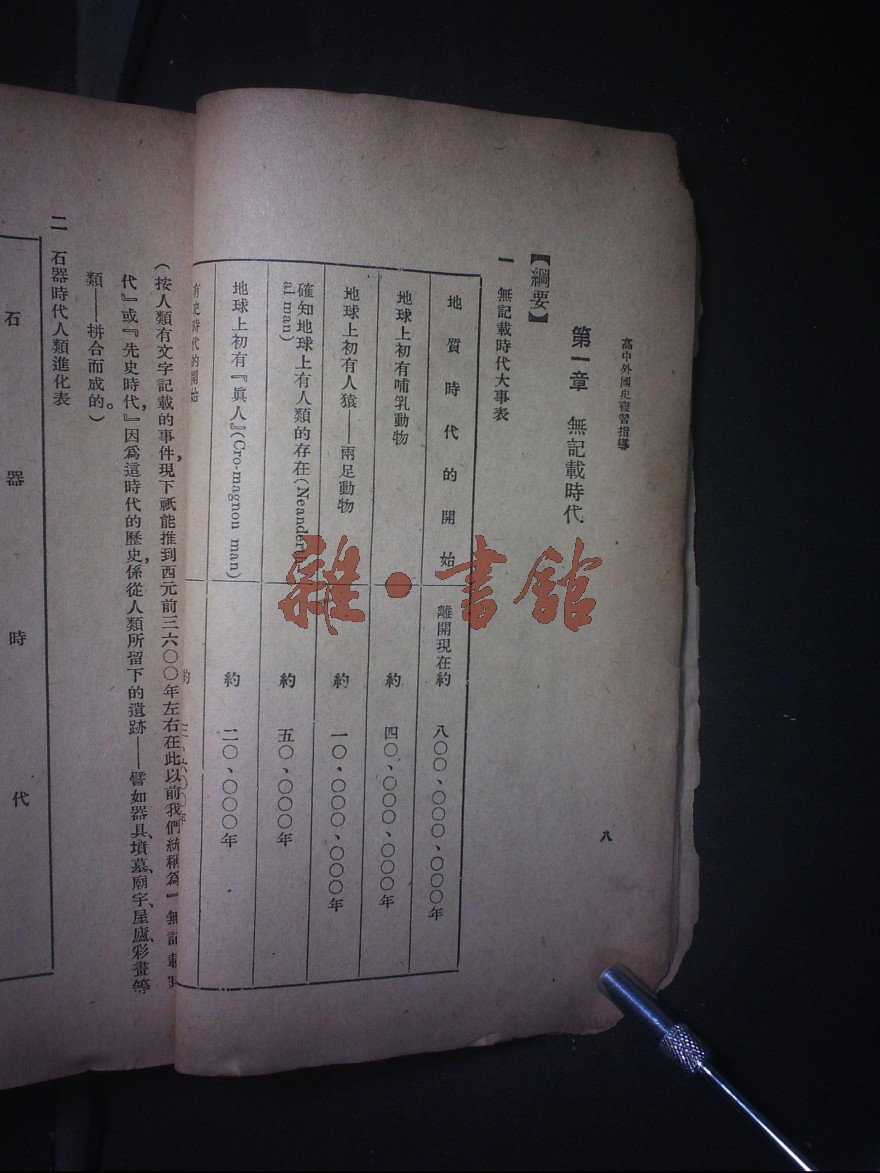 高中外國史複習指導
八
第一章 無記載時代
【綱要】
一 無記載時代大事表
地質時代的開始 離開現在約 八〇〇、〇〇〇、〇〇〇年
地球上初有哺乳動物 約 四〇、〇〇〇、〇〇〇年
地球上初有人猿——兩足動物 約 一〇、〇〇〇、〇〇〇年
確知地球上有人類的存在(Neanderthal man) 約 五〇、〇〇〇年
地球上初有『眞人』(Cro-magnon man) 約 二〇、〇〇〇年
有史時代的開始 約
(按人類有文字記載的事件,現下祇能推到西元前三六〇〇年左右在此以前我們統稱爲『無記載時
代』或『先史時代』,因爲這時代的歷史,係從人類所留下的遺跡——譬如器具、墳墓、廟宇、屋廬、彩畫等
類——拼合而成的。)
二 石器時代人類進化表
石器時代
雜·書館